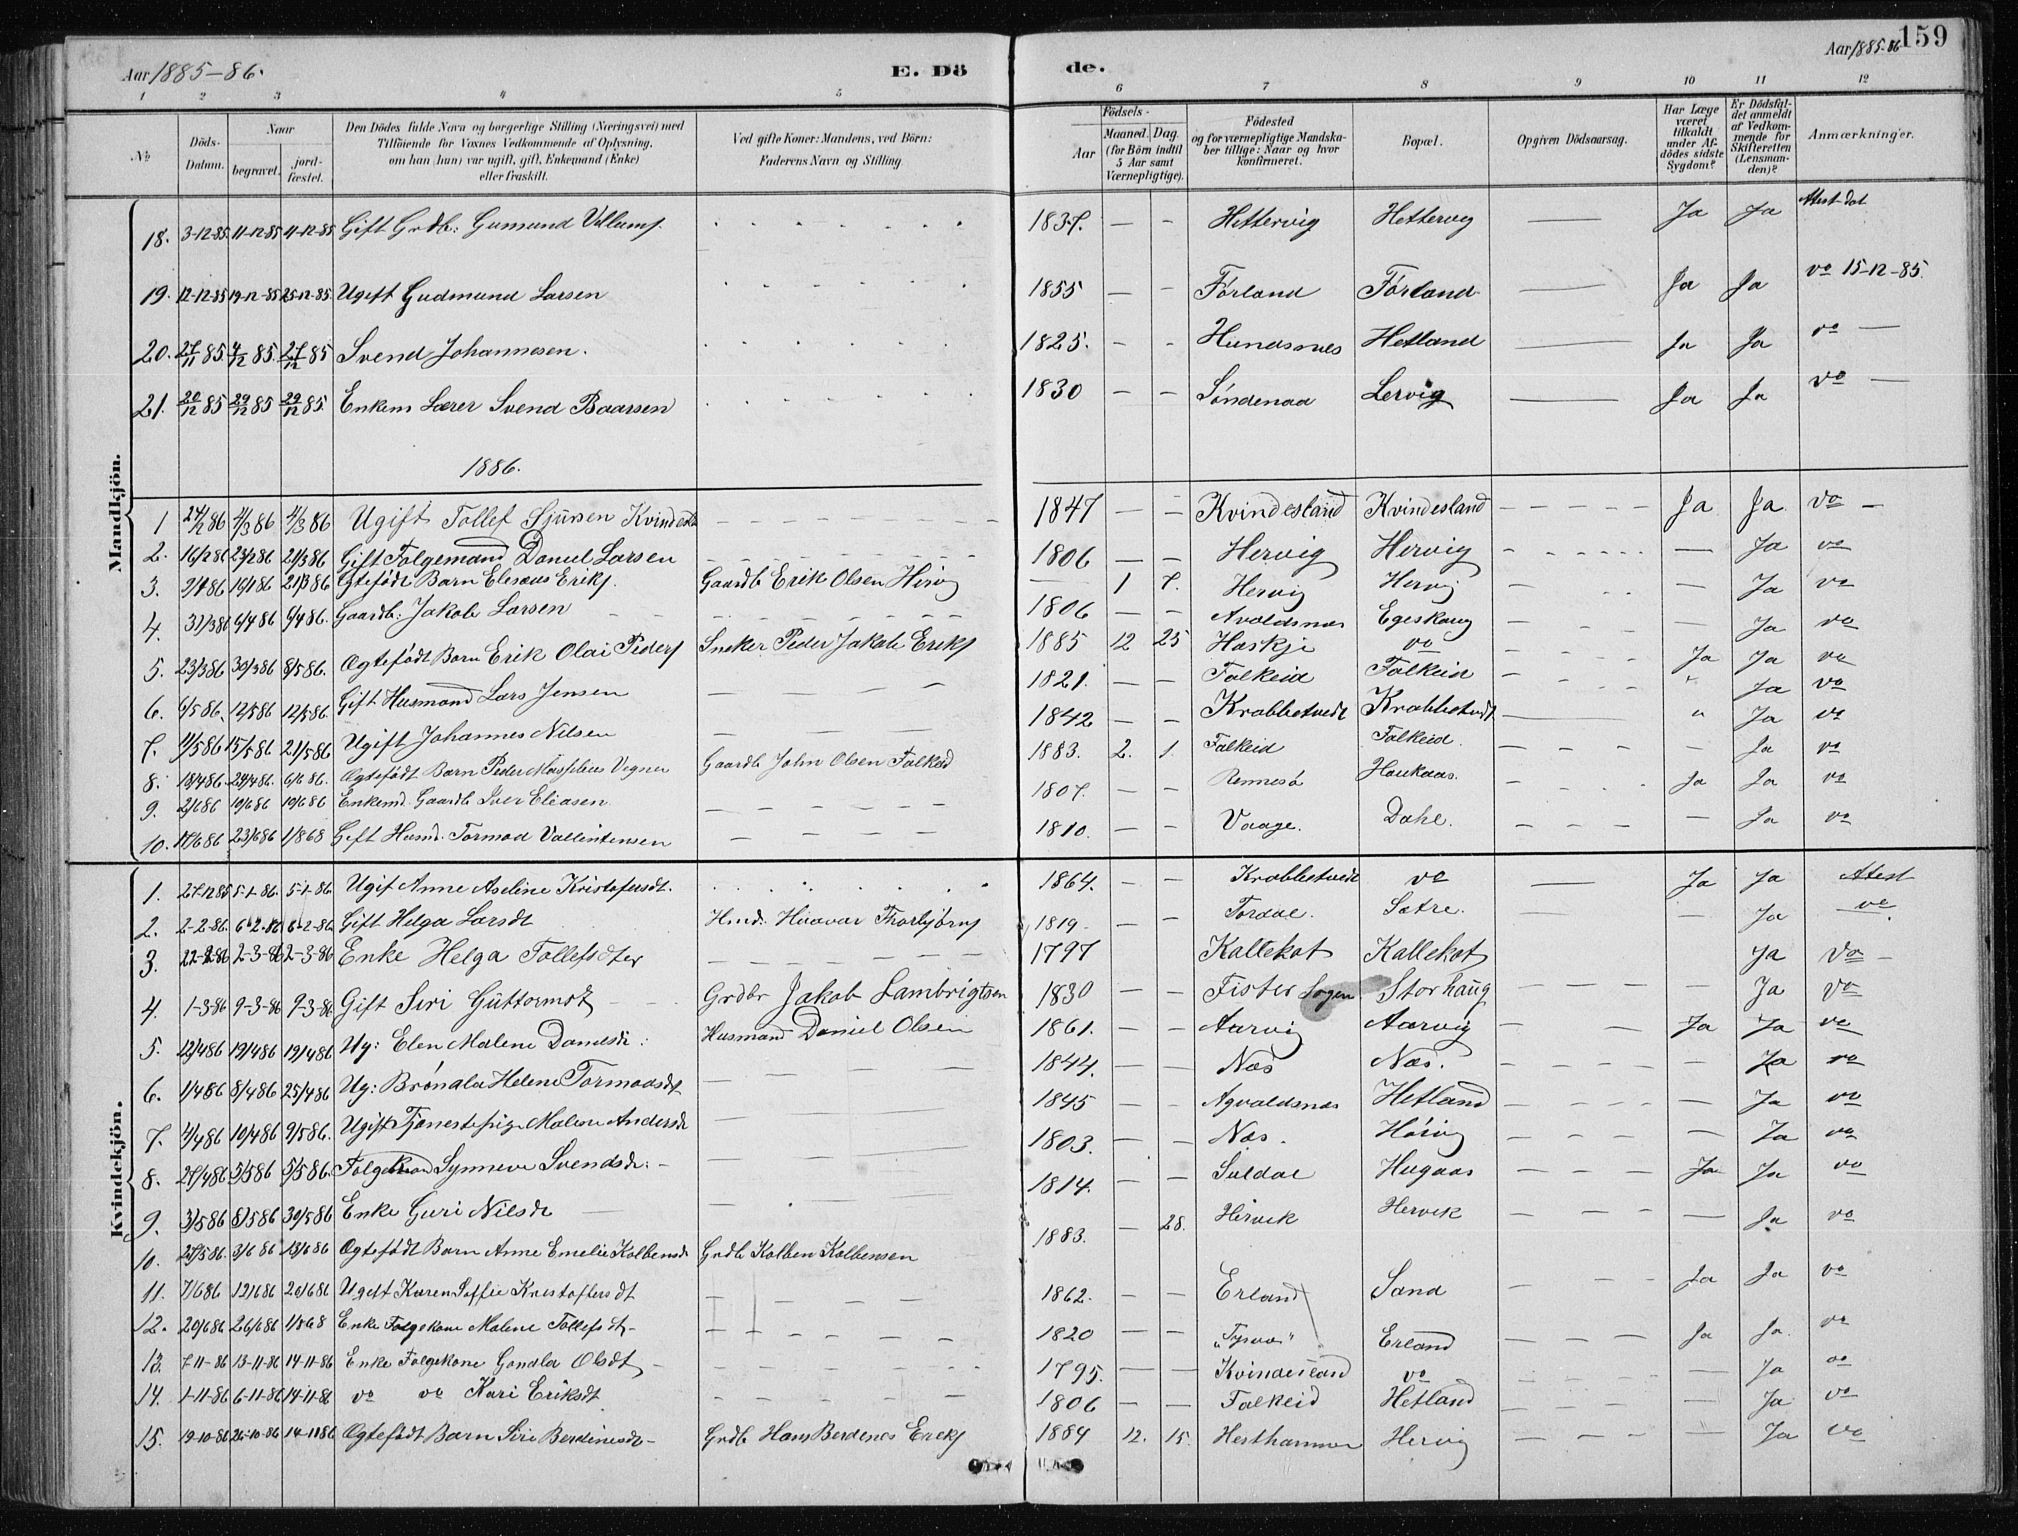 Aar 1885-86.
E. Dö
de.
Aar 1885-86
159
1 2 3 4 5 6 7 8 9 10 11 12
No
Döds-Datum.
Naar
begravet.
jord-fæstet.
Den Dödes fulde Navn og borgerlige Stilling (Næringsvei) med
Tilföiende for Voxnes Vedkommende af Oplysning,
om han (hun) var ugift, gift, Enkemand (Enke)
eller fraskilt.
Ved gifte Koner: Mandens, ved Börn:
Faderens Navn og Stilling.
Födsels-
Aar
Maaned. Dag.
(for Börn indtil
5 Aar samt
Værnepligtige).
Födested
og for værnepligtige Mandska-
ber tillige: Naar og hvor
konfirmeret.
Bopæl.
Opgiven Dödsaarsag.
Har Læge
været
tilkaldt
under Af-
dödes sidste
Sygdom?
Er Dödsfal-
det anmeldt
af Vedkom-
mende for
Skifteretten
(Lensman-
den)?
Anmærkninger.
Mandkjön.
18. 3-12-85 11-12-85 11-12-85 Gift Grdb: Gumund Villums. 1837. — — Hettervig Hettervig — Ja Ja Attest dat
19. 12-12-85 19-12-85 25-12-85 Ugift Gudmund Larsen 1855 — — Førland Førland — Ja Ja vo 15-12-85.
20. 27/11 85. 4/12 85. 27/12 85 Svend Johannesen. 1825. — — Hundsnes Hetland — Ja Ja vo —
21. 20/12 85 29/12 85 29/12 85. Enkem Lærer Svend Baarsen 1830 — — Søndenaa Lervig — Ja Ja vo —
1886.
1 24/2 86 4/3 86 4/3 86 Ugift Tollef Sjursen 1847 — — Kvindesland Kvindesland Ja Ja vo —
2. 16/2 86 23/2 86 21/3 86 Gift Folgemand Daniel Larsen 1806 — — Hervig Hervig — Ja vo
3. 10/1 86 21/3 86 Ogtefødt Barn Eliseus Eriks. Gaardb Erik Olsen — 1 7. Hervig Hervig — Ja vo
4. 6/4 86 9/4 86. Gaardb: Jakob Larsen 1806 — — Avaldsnes Egeskoug — Ja vo
5. 23/3 86 30/3 86 8/5 86. Ogtefødt Barn Erik Olai Peders Sneker Peder Jakob Eriks 1885 12 25 Haskje vo Ja Ja vo
6. 6/5 86. 12/5 86 12/5 86. Gift Husmand Lars Jensen 1821. — — Falkeid Falkeid " Ja vo
7. 11/5 86 15/5 86 21/5 86 Ugift Johannes Nilsen 1842 — — Krabbetvedt Krabbetvedt " Ja vo
8. 18/4 86. 24/4 86. 6/6 86. Ogtefødt Barn Peder Vegner Gaardb John Olsen Falkeid 1883. 2. 1. Falkeid Falkeid. — Ja vo
9. 2/6 86 10/6 86 10/6 86 Enkemd. Gaardb Iver Eliasen 1807. — — Rennesø Haukaas. Ja Ja vo
10. 17/6 86 23/6 86 1/8 68 Gift Husmd. Tormod Vallentensen 1810. — — Vaage. Dahl. — Ja vo
Kvindekjön.
1. 27-12 85 5-1-86. 5-1-86 Ugif Anne Aseline Kristofersdt. 1864. — — Krabbetvedt vo — Ja Ja Attest
2. 2-2-86. 6-2-86 6-2-86. Gift Helga Larsdt Thorbjørns 1819. — — Sætre. — Ja vo
3. 22-2-86 2-3-86 2-3-86 Enke Helga Tollefsdter 1797 — — Kallekot Kallekot Ja vo —
4. 1-3-86 9-3-86 9-3-86 Gift Siri Guttormdt Grdbr Jakob Lambrigtsen 1830 — — Fister Sogn Storhaug Ja vo
5. 12/4 86 19/4 86 19/4 86 Ug: Elen Malene Danielsdt: Husmand Daniel Olsen 1861. — — Aarvig Aarvig Ja Ja vo
6. 1/4 86 8/4 86 25/4 86 Ug: Brøndla Helene Tormodsdt 1844. — — Næs Næs. — Ja vo
7. 4/4 86 10/4 86 9/5 86. Ugift Tjenestepige Malene Andersd 1845 — — Agvaldsnæs Hetland — Ja vo
8. 27/4 86 5/5 86 5/5 86. Folgekone Synneve Svendsdt. 1803. — — Næs. — Ja vo
9. 3/5 86 8/5 86 30/5 86 Enke Guri Nilsdt 1814. — — Suldal Hugaas Ja Ja vo
10. 27/5 86. 3/6 86 13/6 86 Ogtefødt Barn Anne Emelie Kolbensdt Grdb Kolben Kolbensen 1883. — 28. Hervik Hervik — Ja vo
11. 7/6 86 12/6 86 20/6 86 Ugift Karen Soffie Kristoffersdt 1862. — — Erland Sand Ja Ja vo
12. 20/6 86 26/6 86 1/8 68 Enke Folgekone Malene Tollefsdt 1820 — — "Tysvær" Erland Ja Ja. vo
13. 7-11-86 13-11-86 14-11-86 Enke Folgekone Gondla Olsdt 1795. — — Kvindesland vo Ja vo
14. 1-11-86 6-11-86 14-11-86 vo vo Kari Eriksdt 1806 — — Falkeid Hetland — Ja vo
15. 19-10-86 26-10-86 14-11 86 Ogtefødt Barn Siri Berdinesdt Grdb Hans Berdenes Eriks 1884 12. 15. Hesthammer Hervig — Ja vo